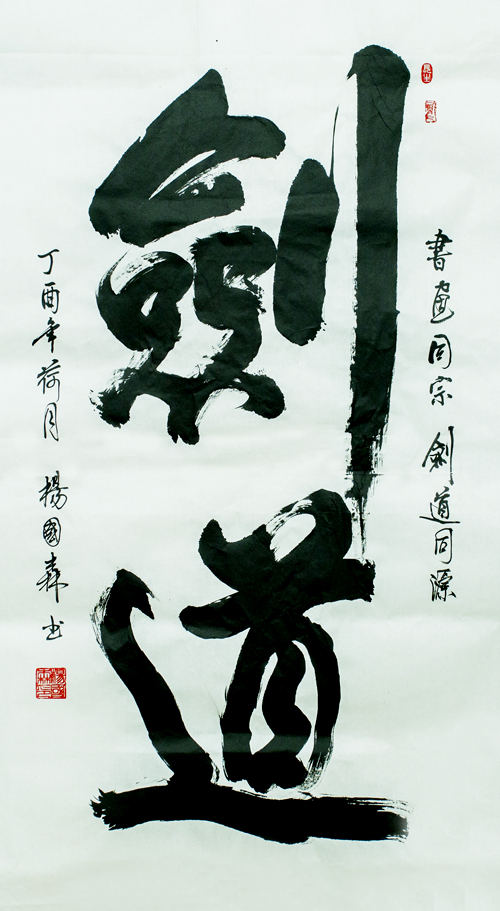 書畫同宗 劍道同源
劍道
丁酉年荷月 楊國 书